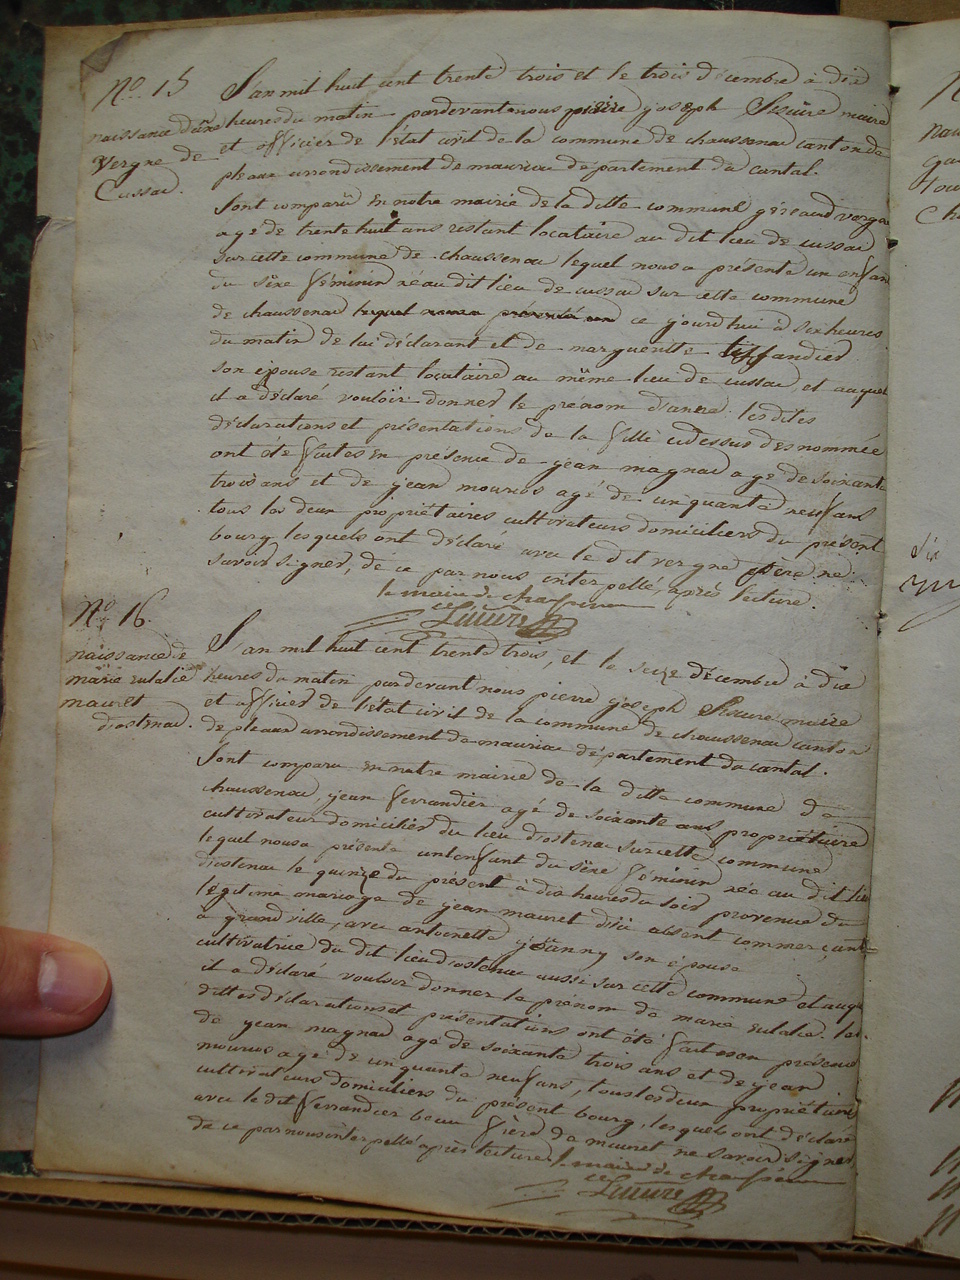 N.o 15
naissance d'anne
Vergne de
Cussac.
L'an mil huit cent trente trois et le trois décembre à dix
heures du matin pardevant nous pierre joseph maire
et officier de l'état civil de la commune de chaussenac canton de
pleaux arrondissement de mauriac département du cantal.
Sont comparû en notre mairie de la ditte commune géraud vergne
agé de trente huit ans restant locataire au dit lieu de cussac
sur cette commune de chaussenac lequel nous a présenté un enfant
du sexe féminin née au dit lieu de cussac sur cette commune
de chaussenac lequel nous a présenté un ce jourd'hui à six heures
du matin de lui déclarant et de margueritte tiffandier
son épouse restant locataire au même lieu de cussac, et auquel
il a déclaré vouloir donner le prénom d'anne. les dites
déclarations et présentations de la fille cidessus desnommée
ont été faites en présence de jean magnac agé de soixante
trois ans et de jean mournes agé de cinquante neuf ans
tous les deux propriétaires cultivateurs domiciliers du présent
bourg, lesquels ont déclaré avec le dit vergne père ne
savoir signer, de ce par nous interpellé, après lecture.
le maire de chaussenac
N.o 16.
naissance de
marie eulalie
mauret
d'ostenac.
L'an mil huit cent trente trois, et le seize décembre à dix
heures du matin pardevant nous pierre joseph maire
et officier de l'état civil de la commune de chaussenac canton
de pleaux arrondissement de mauriac département du cantal.
Sont comparu en notre mairie de la ditte commune de
chaussenac, jean ferrandier agé de soixante ans propriétaire
cultivateur domicilier du lieu d'ostenac sur cette commune
lequel nous a présenté un enfant du sexe féminin née au dit lieu
d'ostenac le quinze du présent à dix heures du soir provenue du
légitime mariage de jean mauret dixi absent commerçant
à grandville, avec antoinette jeanny son épouse
cultivatrice du dit lieu d'ostenac aussi sur cette commune et auquel
il a déclaré vouloir donner le prénom de marie eulalie. les
dittes déclarations et présentations ont été faites en présence
de jean magnac agé de soixante trois ans et de jean
mournes agé de cinquante neuf ans, tous les deux propriétaires
cultivateurs domiciliers du présent bourg, lesquels ont déclaré
avec le dit ferrandier beau père de mauret ne savoir signer
de ce par nous interpellé après lecture. le maire de chaussenac